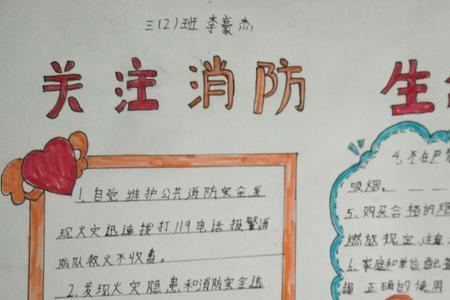 三(2)班 李豪杰
关注消防 生
1、自觉维护公共消防安全发
现火灾迅速拨打119电话报警消
防队救火不收费。
2、发现火灾隐患和消防安全违
4、不在严
吸烟。
5、购买合格的烟
燃放规定,注意
6、家庭和单位配备
握正确的使用